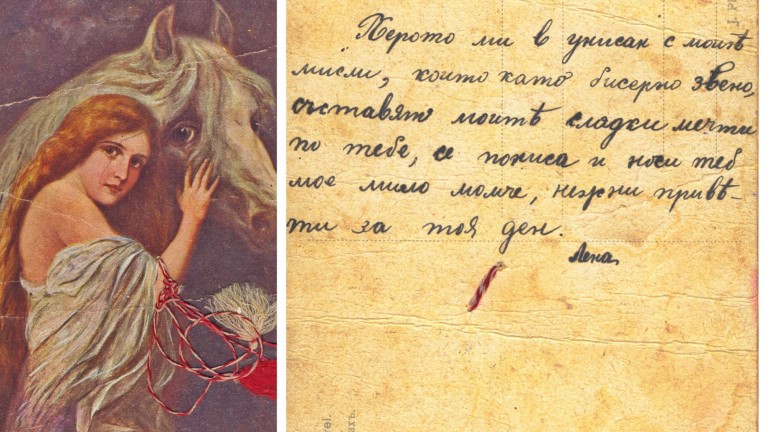 Перото ми в унисан с моитѣ
мисли, които като бисерно звено,
съставят моитѣ сладки мечти
по тебе, се понися и носи теб
мое мило момче, нежни привѣ-
ти за тоя ден.
Лена